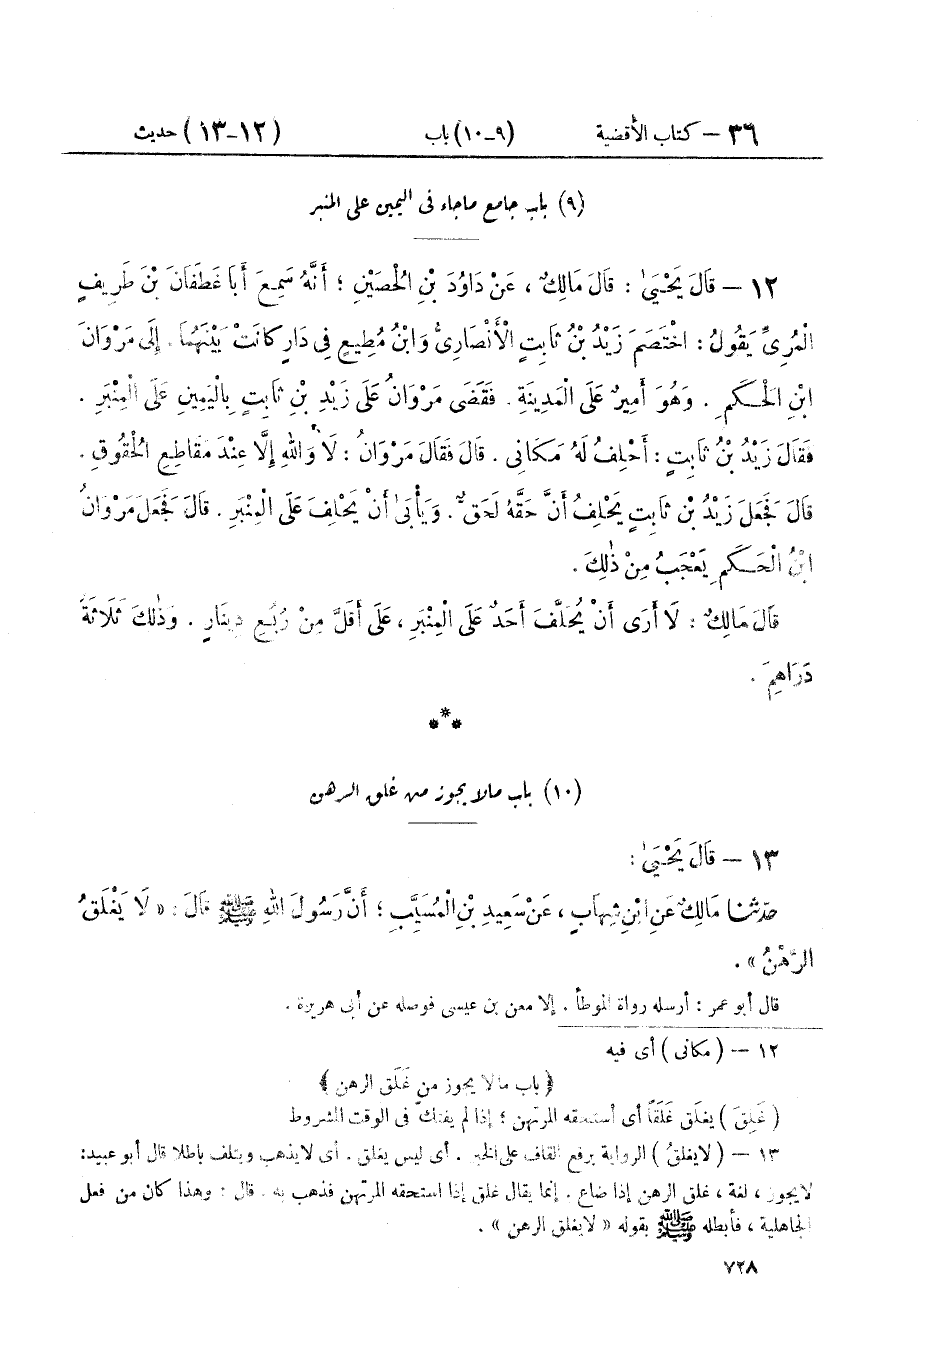 ٣٦ – كتاب الأقضية (٩–١٠) باب (١٢–١٣) حديث
(٩) باب جامع ماجاء فى اليمين على المنبر
١٢ – قَالَ يَحْيَىٰ : قَالَ مَالِكٌ ، عَنْ دَاوُدَ بْنِ الْحُصَيْنِ ؛ أَنَّهُ سَمِعَ أَبَا غَطَفَانَ بْنَ طَرِيفٍ
الْمُرِىَّ يَقُولُ : اخْتَصَمَ زَيْدُ بْنُ ثَابِتٍ الْأَنْصَارِىُّ وَابْنُ مُطِيعٍ فِى دَارٍ كَانَتْ بَيْنَهُمَا . إِلَى مَرْوَانَ
ابْنِ الْحَكَمِ . وَهُوَ أَمِيرٌ عَلَى الْمَدِينَةِ . فَقَضَى مَرْوَانُ عَلَى زَيْدِ بْنِ ثَابِتٍ بِالْيَمِينِ عَلَى الْمِنْبَرِ .
فَقَالَ زَيْدُ بْنُ ثَابِتٍ : أَحْلِفُ لَهُ مَكَانِى . قَالَ فَقَالَ مَرْوَانُ : لَا وَاللهِ إِلَّا عِنْدَ مَقَاطِعِ الْحُقُوقِ .
قَالَ فَجَعَلَ زَيْدُ بْنُ ثَابِتٍ يَحْلِفُ أَنَّ حَقَّهُ لَحَقٌّ . وَيَأْبَىٰ أَنْ يَحْلِفَ عَلَى الْمِنْبَرِ . قَالَ فَجَعَلَ مَرْوَانُ
ابْنُ الْحَكَمِ يَعْجَبُ مِنْ ذٰلِكَ .
قَالَ مَالِكٌ : لَا أَرَى أَنْ يُحَلَّفَ أَحَدٌ عَلَى الْمِنْبَرِ ، عَلَى أَقَلَّ مِنْ رُبُعِ دِينَارٍ . وَذٰلِكَ ثَلَاثَةُ
دَرَاهِمَ .
***
(١٠) باب مالا يجوز من غلق الرهن
١٣ – قَالَ يَحْيَىٰ :
حَدَّثَنَا مَالِكٌ عَنِ ابْنِ شِهَابٍ ، عَنْ سَعِيدِ بْنِ الْمُسَيَّبِ ؛ أَنَّ رَسُولَ اللهِ ﷺ قَالَ : « لَا يَغْلَقُ
الرَّهْنُ » .
قال أبو عمر : أرسله رواة الموطأ . إلا معن بن عيسى فوصله عن أبى هريرة .
١٢ – ( مكانى ) أى فيه
﴿ باب مالا يجوز من غَلَق الرهن ﴾
( غَلِقَ ) يغلَق غَلَقاً أى أستحقه المرتهن ؛ إذا لم يفتك فى الوقت المشروط
١٣ – ( لايغلقُ ) الرواية برفع القاف على الخبر . أى ليس يغلق . أى لايذهب ويتلف باطلا قال أبو عبيد :
لايجوز ، لغة ، غلق الرهن إذا ضاع . إنما يقال غلق إذا استحقه المرتهن فذهب به . قال : وهذا كان من فعل
الجاهلية ، فأبطله ﷺ بقوله « لايغلق الرهن » .
٧٢٨